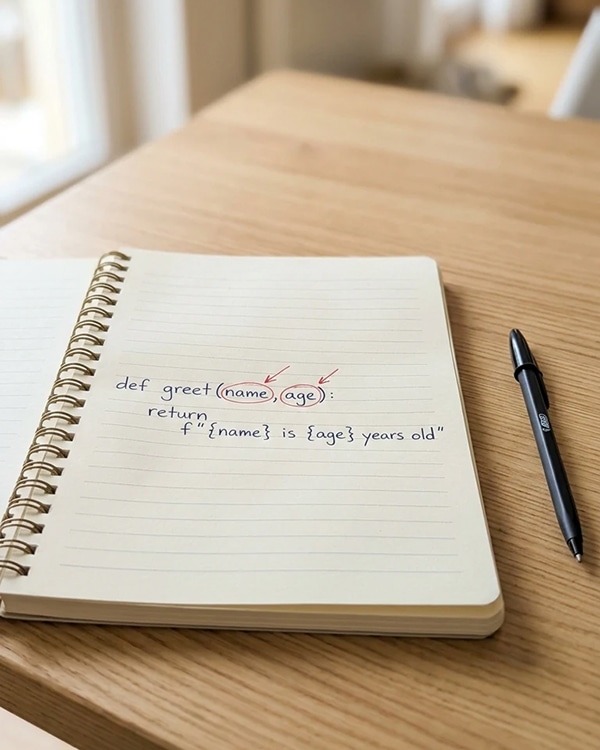 def greet(name, age):
return
f"{name} is {age} years old"